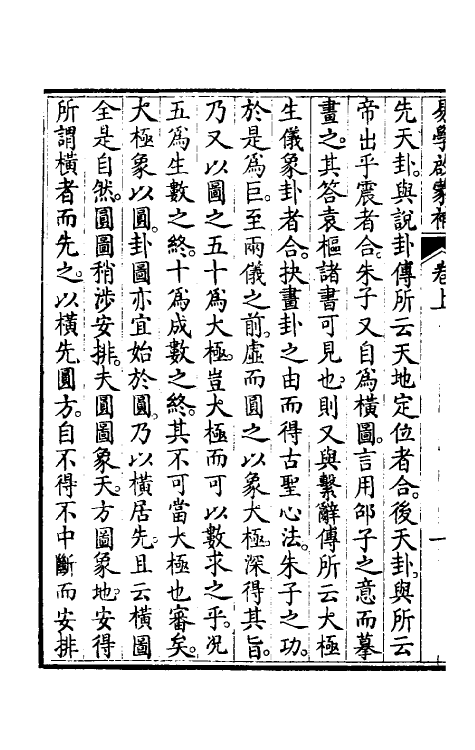 易學啟蒙補 卷上 一
先天卦與說卦傳所云天地定位者合。後天卦與所云
帝出乎震者合。朱子又自爲橫圖。言用邵子之意而摹
畫之。其答袁樞諸書可見也。則又與繫辭傳所云大極
生儀象卦者合。抉畫卦之由而得古聖心法。朱子之功。
於是爲巨。至兩儀之前。虛而圓之以象大極。深得其旨。
乃又以圖之五十爲大極。豈大極而可以數求之乎。況
五爲生數之終。十爲成數之終。其不可當大極也審矣。
大極象以圓。卦圖亦宜始於圓。乃以橫居先。且云橫圖
全是自然。圓圖稍涉安排。夫圓圖象天。方圖象地。安得
所謂橫者而先之。以橫先圓方。自不得不中斷而安排